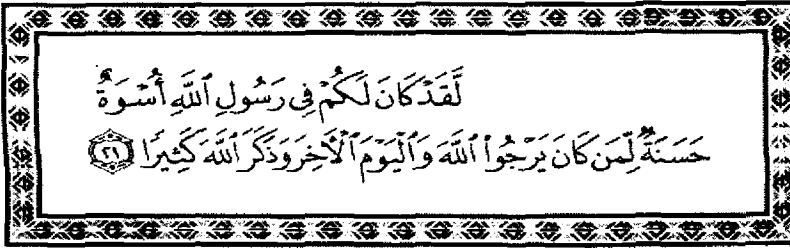 لَّقَدْ كَانَ لَكُمْ فِى رَسُولِ ٱللَّهِ أُسْوَةٌ
حَسَنَةٌ لِّمَن كَانَ يَرْجُوا۟ ٱللَّهَ وَٱلْيَوْمَ ٱلْـَٔاخِرَ وَذَكَرَ ٱللَّهَ كَثِيرًا ٢١